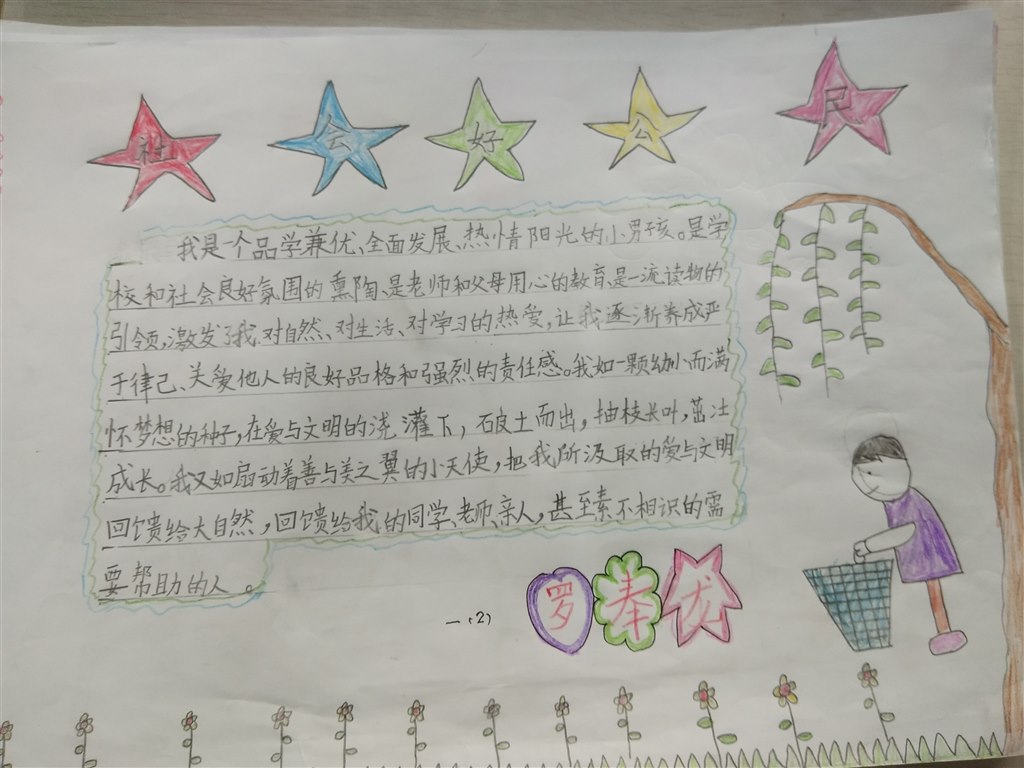 社会好公民
我是一个品学兼优、全面发展、热情阳光的小男孩。是学
校和社会良好氛围的熏陶、是老师和父母用心的教育、是一流读物的
引领,激发了我对自然、对生活、对学习的热爱,让我逐渐养成严
于律己、关爱他人的良好品格和强烈的责任感。我如一颗幼小而满
怀梦想的种子,在爱与文明的浇灌下,破土而出,抽枝长叶,茁壮
成长。我又如扇动着善与美之翼的小天使,把我所汲取的爱与文明
回馈给大自然,回馈给我的同学、老师、亲人,甚至素不相识的需
要帮助的人。
一(2)
罗奉优